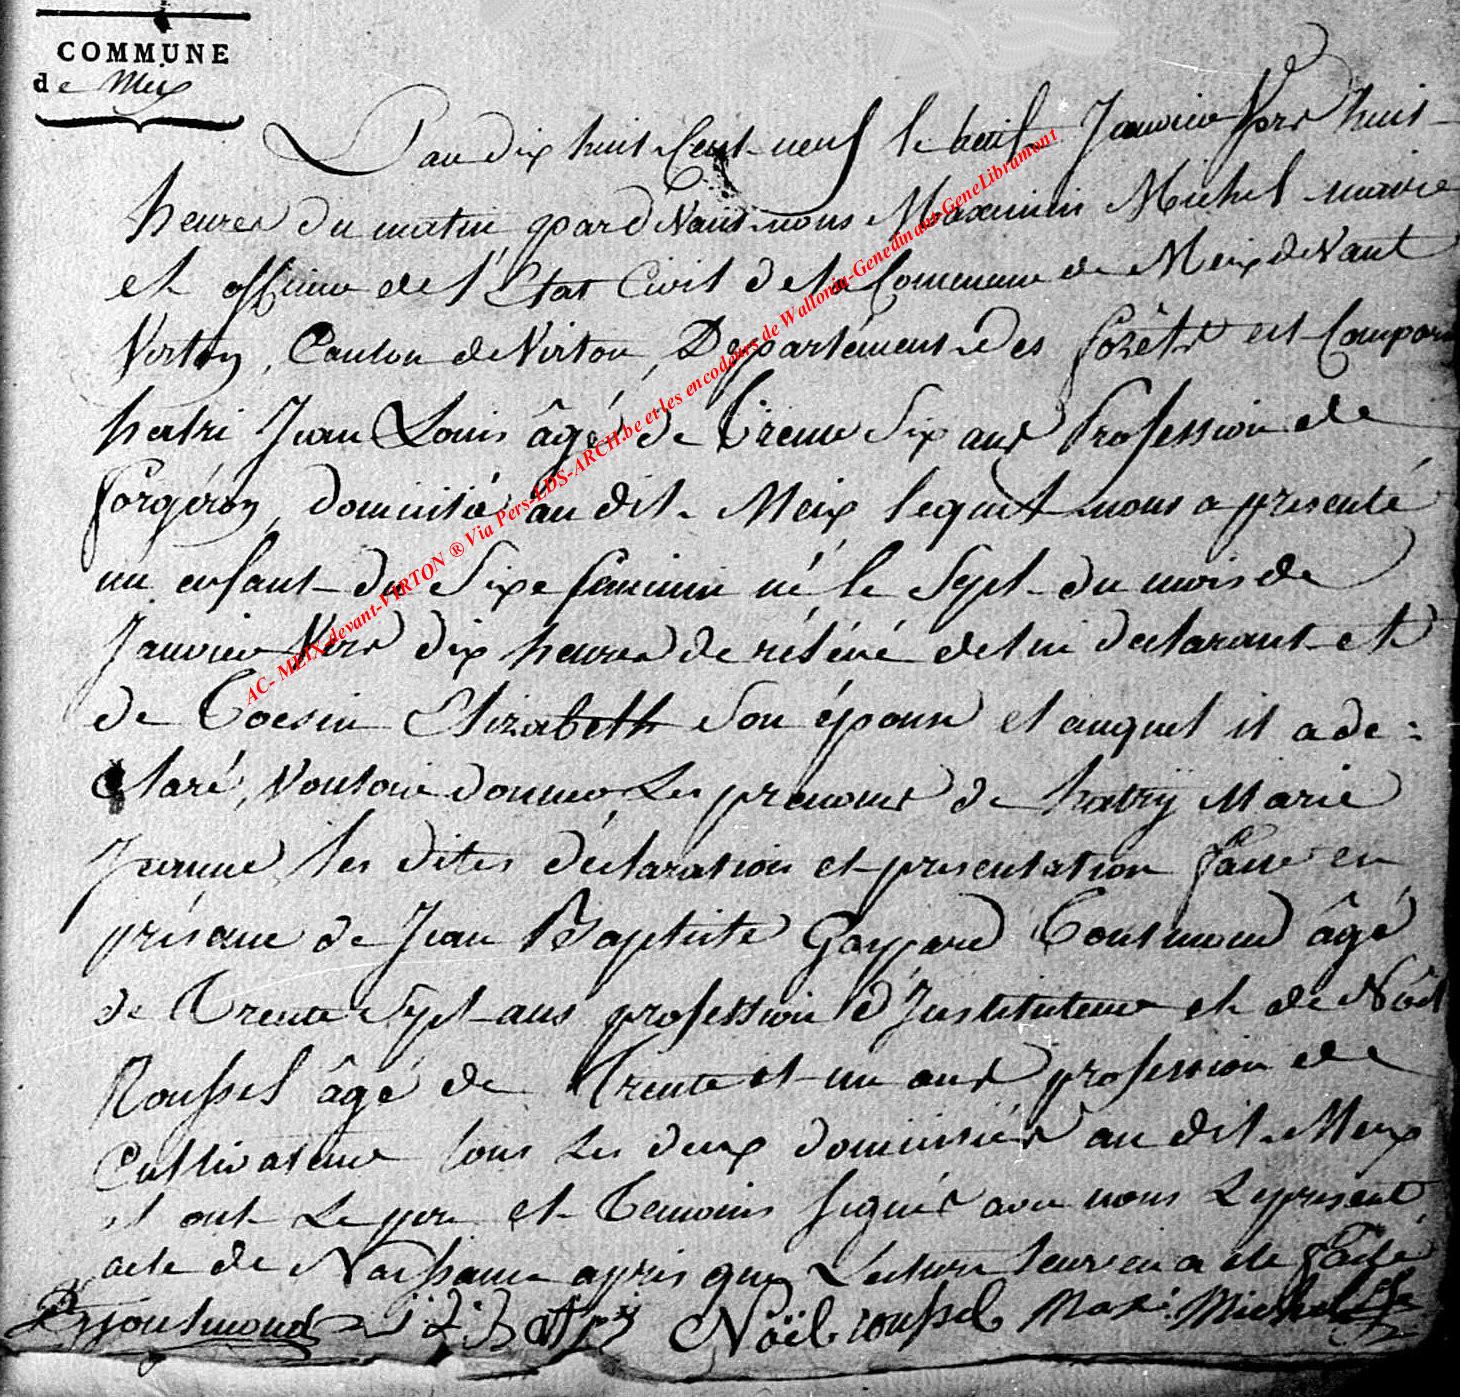 COMMUNE
de Meix
L'an dix huit Cent neuf le huit Janvier Vers huit
heures du matin, pardevant nous Maximin Michel maire
et officier de l'Etat Civil de la Commune de Meix devant
Virton, Canton de Virton, Département des forêts est Comparu
hatri Jean Louis âgé de Trente Six ans Profession de
forgéron, domicilié au dit Meix lequel nous a presenté
un enfant du Sixe feminin né le Sept du mois de
Janvier Vers dix heures de rélévé de lui declarant et
de Tocsin Elizabeth Son épouse et auquel il a dé:
claré, Vouloir donner Les prenoms de hatrÿ Marie
Jeanne, les dites déclaration et presentation faite en
présence de Jean Baptiste Gaspard Toutmond âgé
de Trente Sept ans profession d'Instituteur et de Nöel
Roussel âgé de Trente et un ans profession de
Cultivateur tous Les deux domiciliés au dit Meix
et ont Le pere et Temoins signés avec nous Le present
acte de Naissance apres que Lecture leur en a été faite
toutmond Noël roussel Max: Michel
AC- MEIX-devant-VIRTON ® Via Pers-LDS-ARCH.be et les encodeurs de Wallonia-Genedinant-GeneLibramont